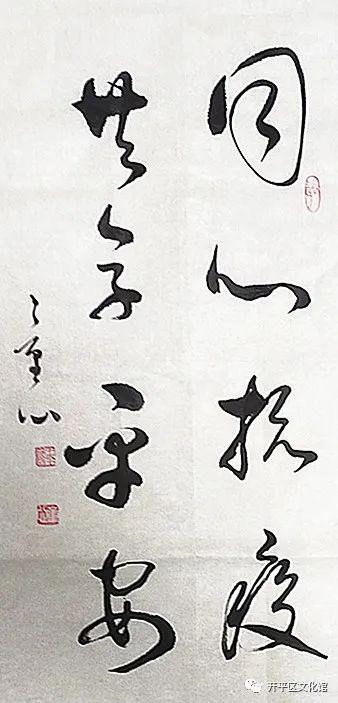 同心抗疫
共享平安
开平区文化馆